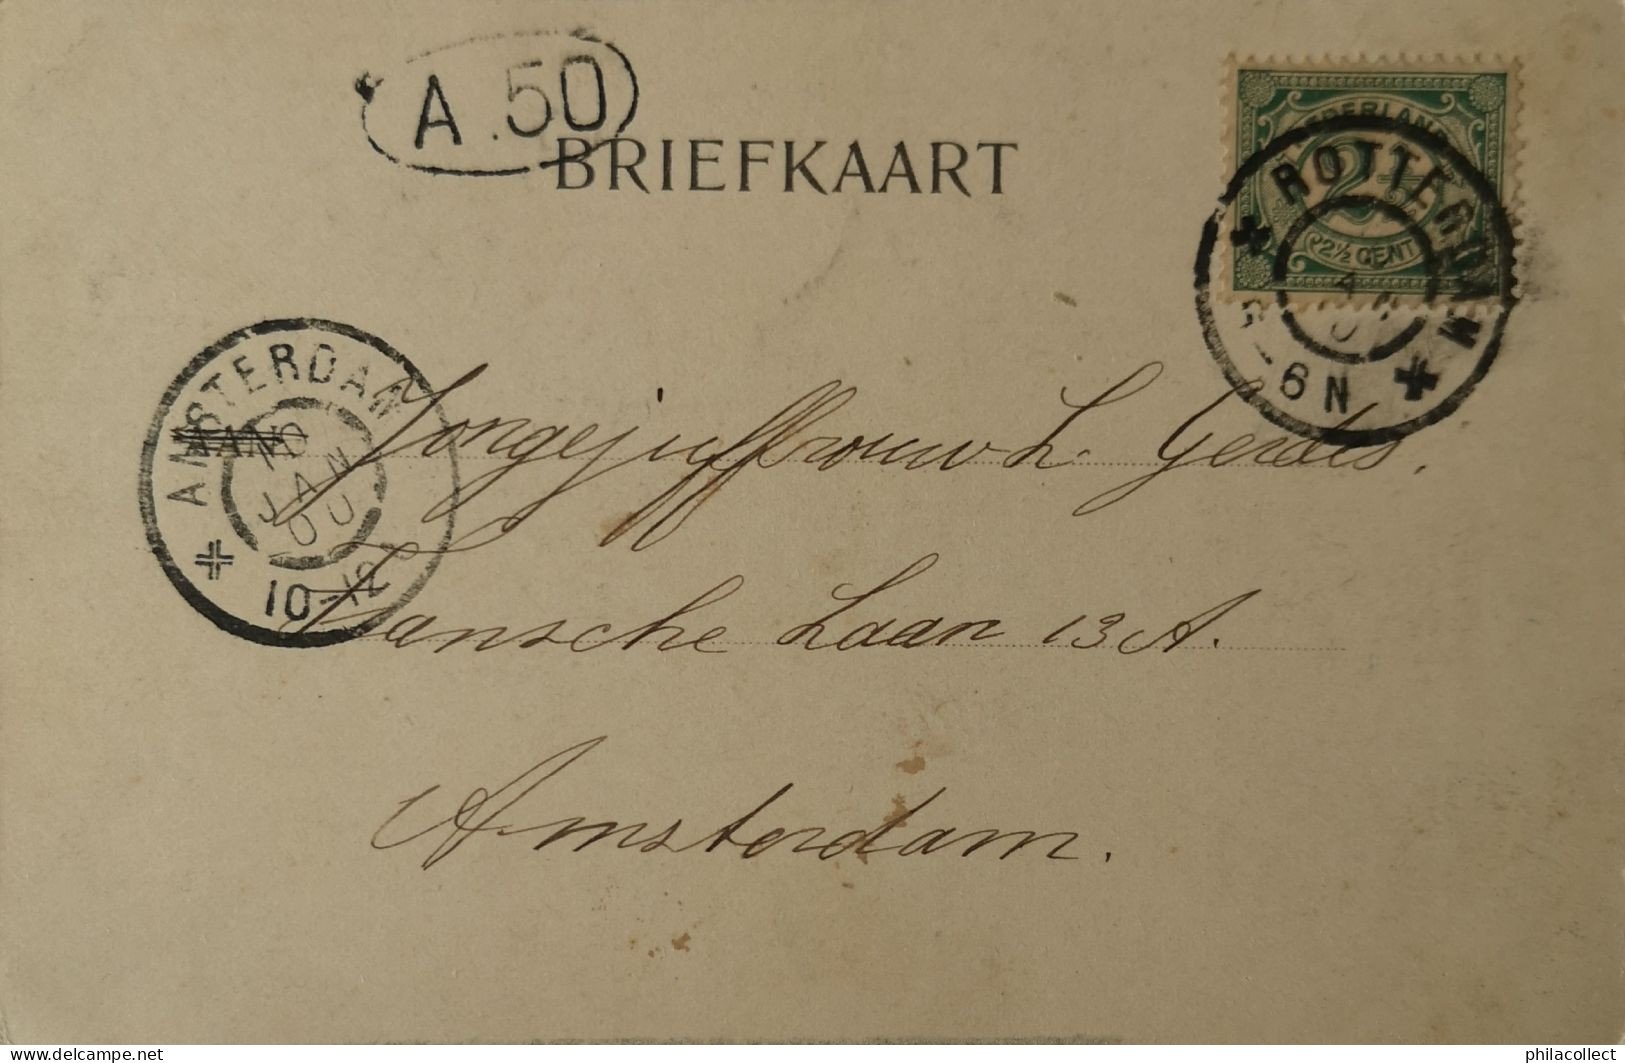 A.50
BRIEFKAART
NEDERLAND
2½
2½ CENT
ROTTERDAM
6N
AMSTERDAM
10
JAN
00
10-12
AAN
Jongejuffrouw L. Gerdes.
Fransche Laan 13 A.
Amsterdam.
philacollect